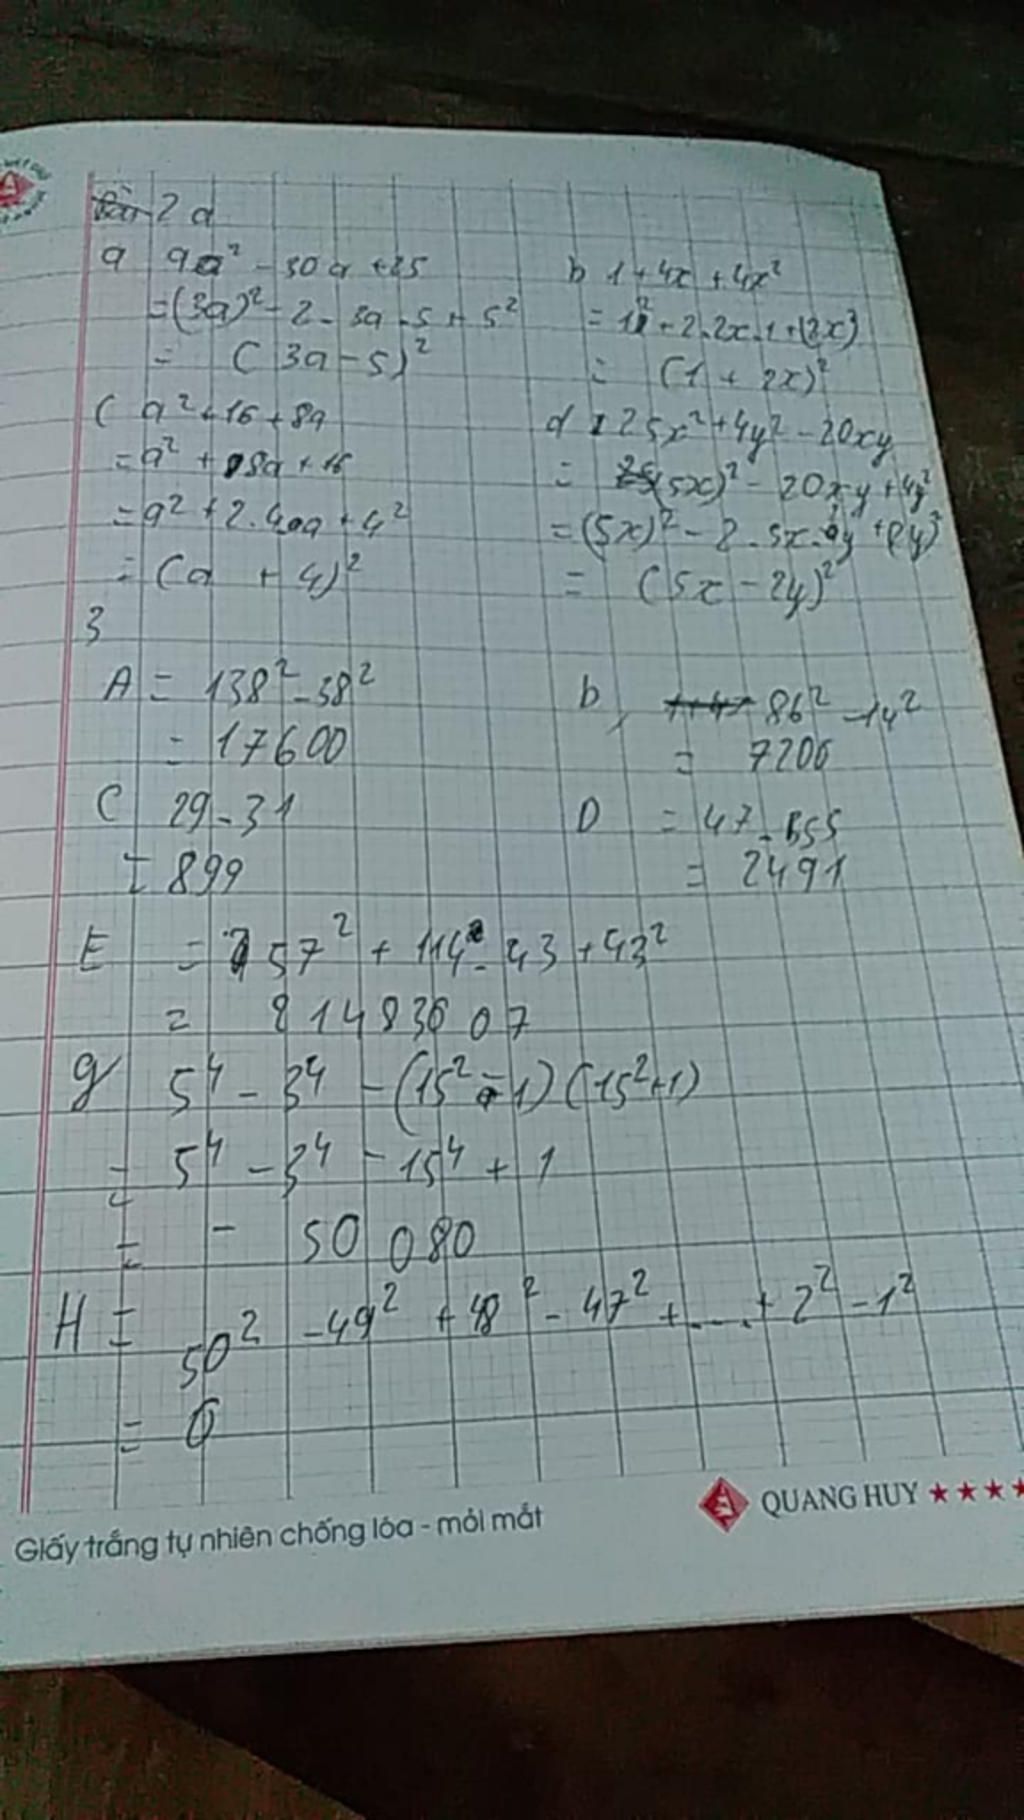 Bài 2 a
a 9a² - 30a + 25
= (3a)² - 2 . 3a . 5 + 5²
= (3a - 5)²
b 1 + 4x + 4x²
= 1² + 2.2x.1 + (2x)²
= (1 + 2x)²
C a² + 16 + 8a
= a² + 8a + 16
= a² + 2.4a + 4²
= (a + 4)²
d 25x² + 4y² - 20xy
= (5x)² - 20xy + 4y²
= (5x)² - 2 . 5x . 2y + (2y)²
= (5x - 2y)²
3
A = 138² - 38²
= 17600
b, 86² - 14²
= 7200
C 29 . 31
= 899
D = 47 . 53
= 2491
E = 57² + 114 . 43 + 43²
g 5⁴ - 3⁴ - (15² - 1)(15² + 1)
= 5⁴ - 3⁴ - 15⁴ + 1
= - 50 080
H = 50² - 49² + 48² - 47² + ... + 2² - 1²
= 0
QUANG HUY ★★★★
Giấy trắng tự nhiên chống lóa - mỏi mắt